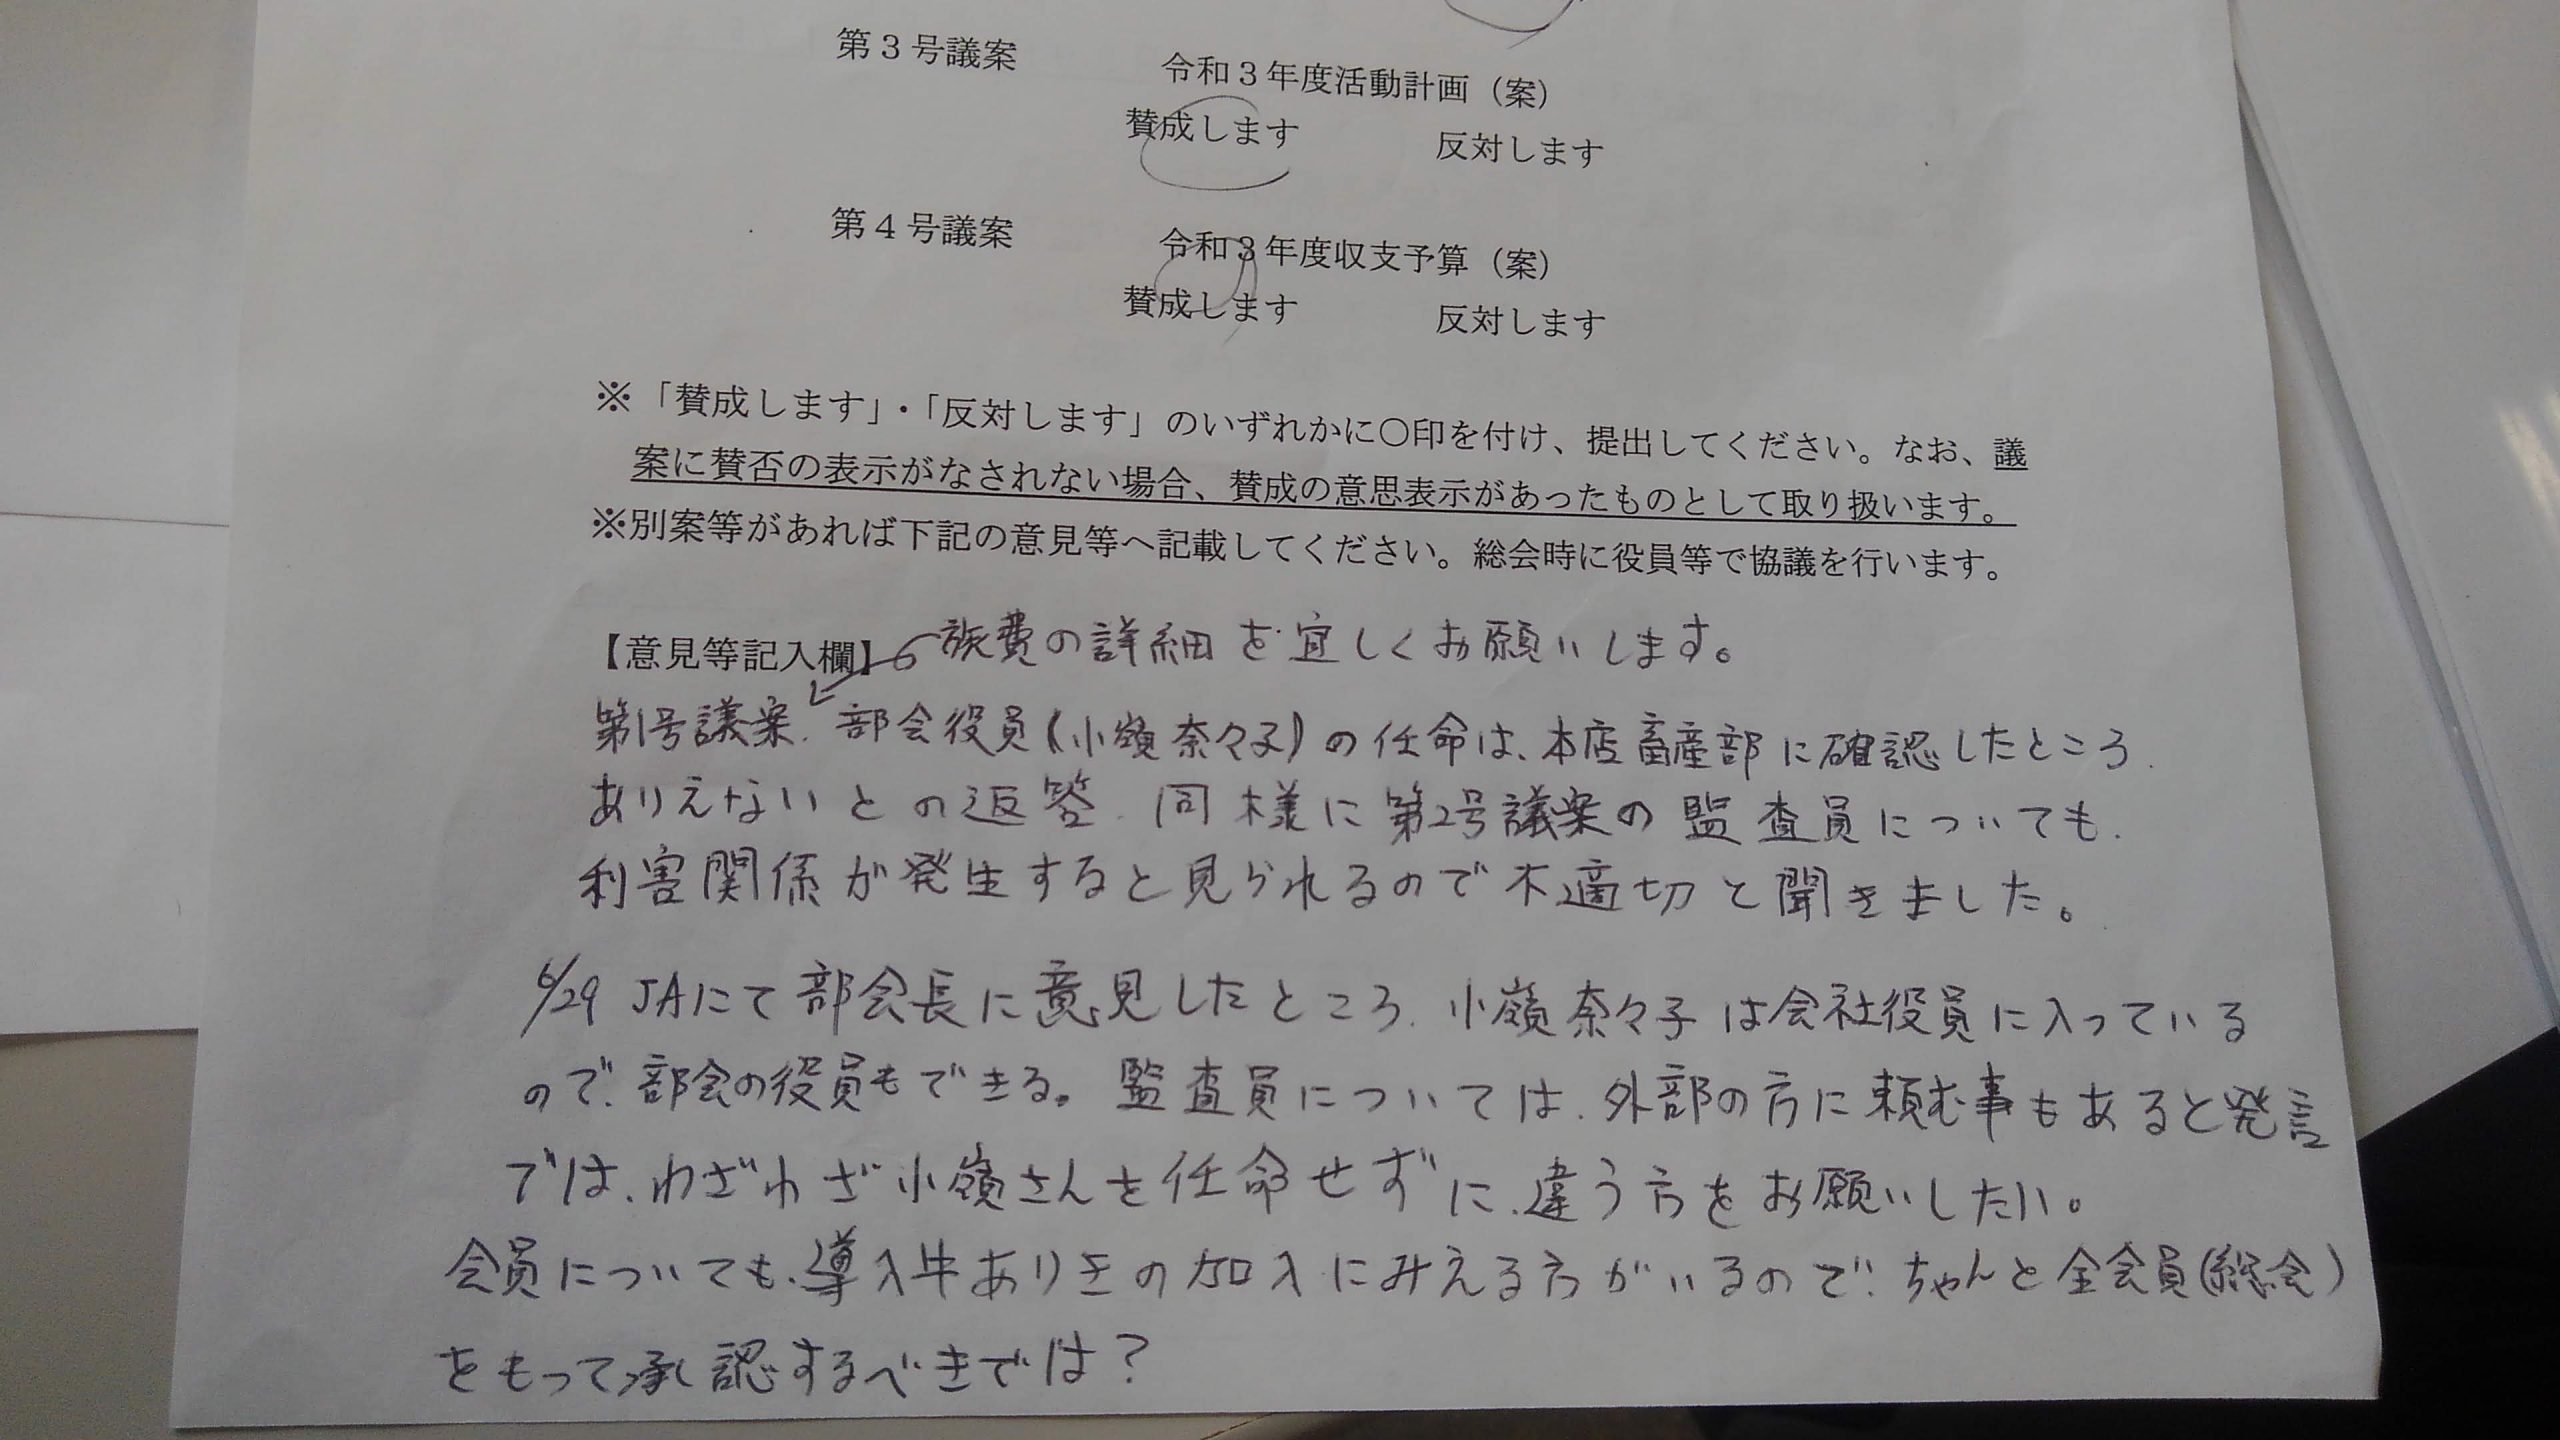 第３号議案　令和３年度活動計画（案）
賛成します　反対します
第４号議案　令和３年度収支予算（案）
賛成します　反対します
※「賛成します」・「反対します」のいずれかに〇印を付け、提出してください。なお、議
案に賛否の表示がなされない場合、賛成の意思表示があったものとして取り扱います。
※別案等があれば下記の意見等へ記載してください。総会時に役員等で協議を行います。
【意見等記入欄】旅費の詳細を宜しくお願いします。
第1号議案、部会役員(小嶺奈々子)の任命は、本店畜産部に確認したところ、
ありえないとの返答、同様に第2号議案の監査員についても、
利害関係が発生すると見られるので不適切と聞きました。
6/29 JAにて部会長に意見したところ、小嶺奈々子は会社役員に入っている
ので、部会の役員もできる。監査員については、外部の方に頼む事もあると発言
では、わざわざ小嶺さんを任命せずに、違う方をお願いしたい。
会員についても、導入牛ありきの加入にみえる方がいるので、ちゃんと全会員(総会)
をもって承認するべきでは？